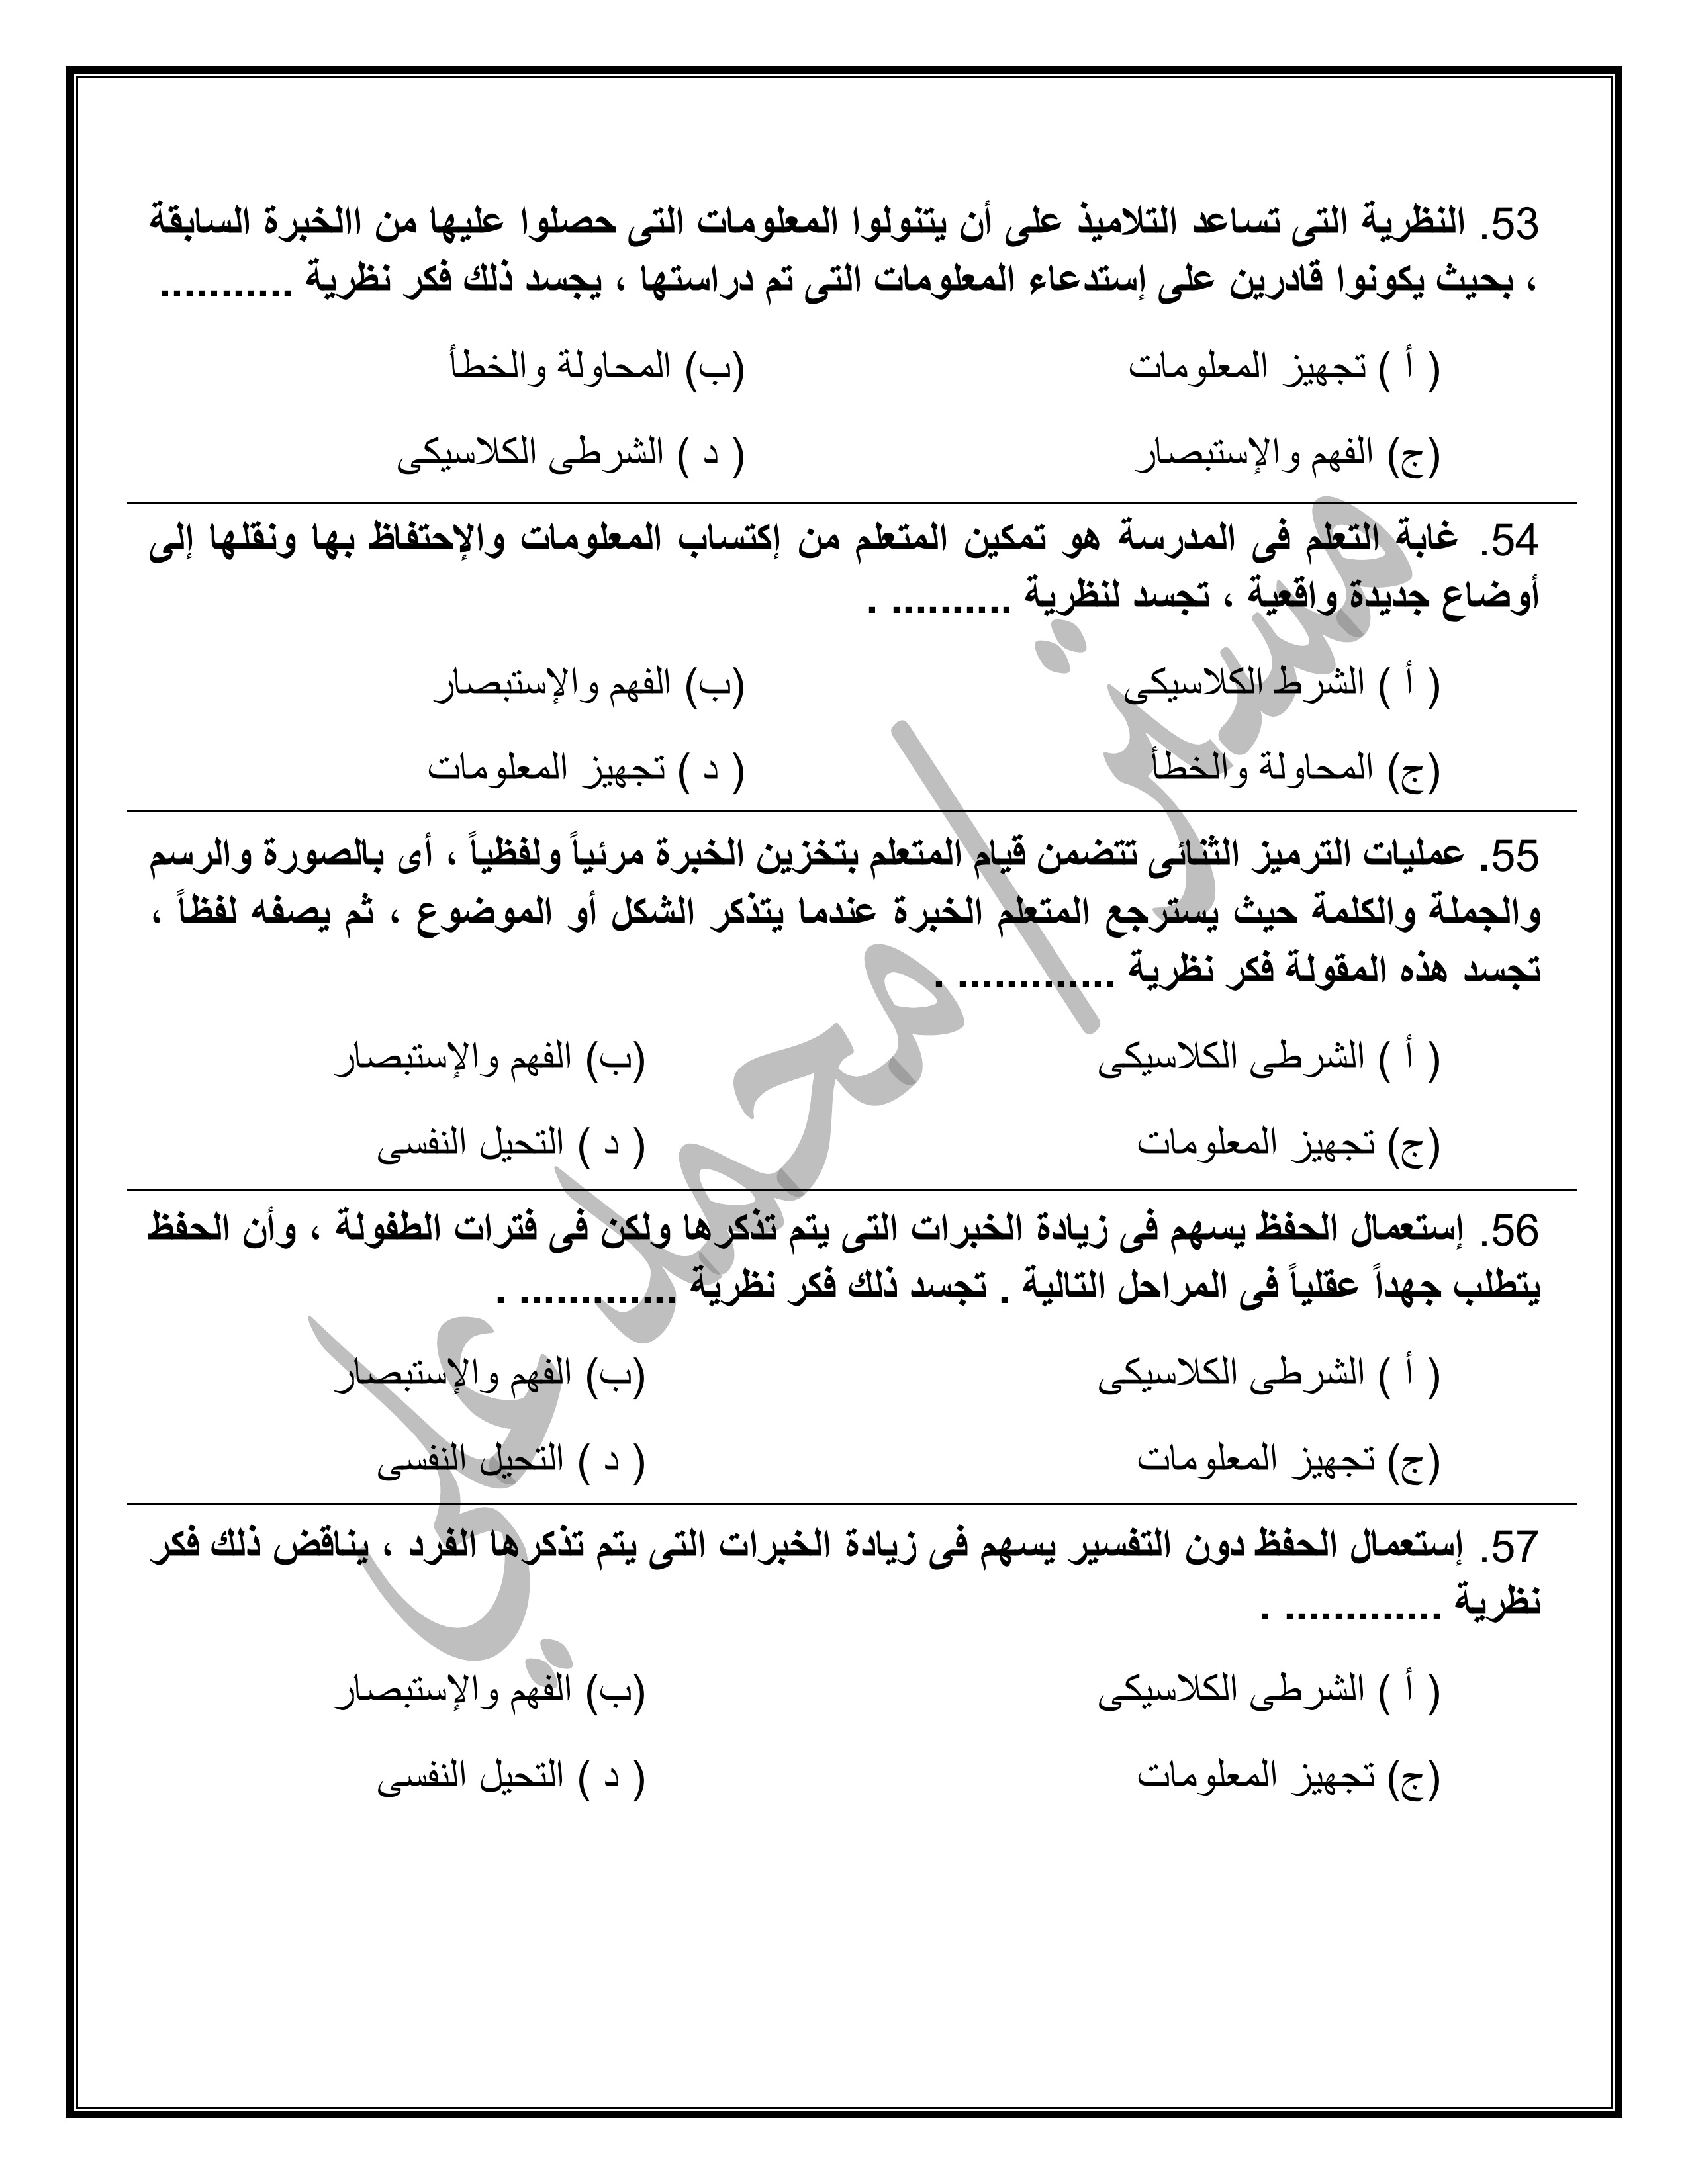 53. النظرية التى تساعد التلاميذ على أن يتنولوا المعلومات التى حصلوا عليها من االخبرة السابقة
، بحيث يكونوا قادرين على إستدعاء المعلومات التى تم دراستها ، يجسد ذلك فكر نظرية ...........
( أ ) تجهيز المعلومات (ب) المحاولة والخطأ
(ج) الفهم والإستبصار ( د ) الشرطى الكلاسيكى
54. غابة التعلم فى المدرسة هو تمكين المتعلم من إكتساب المعلومات والإحتفاظ بها ونقلها إلى
أوضاع جديدة واقعية ، تجسد لنظرية .......... .
( أ ) الشرط الكلاسيكى (ب) الفهم والإستبصار
(ج) المحاولة والخطأ ( د ) تجهيز المعلومات
55. عمليات الترميز الثنائى تتضمن قيام المتعلم بتخزين الخبرة مرئياً ولفظياً ، أى بالصورة والرسم
والجملة والكلمة حيث يسترجع المتعلم الخبرة عندما يتذكر الشكل أو الموضوع ، ثم يصفه لفظاً ،
تجسد هذه المقولة فكر نظرية ............. .
( أ ) الشرطى الكلاسيكى (ب) الفهم والإستبصار
(ج) تجهيز المعلومات ( د ) التحيل النفسى
56. إستعمال الحفظ يسهم فى زيادة الخبرات التى يتم تذكرها ولكن فى فترات الطفولة ، وأن الحفظ
يتطلب جهداً عقلياً فى المراحل التالية . تجسد ذلك فكر نظرية ............. .
( أ ) الشرطى الكلاسيكى (ب) الفهم والإستبصار
(ج) تجهيز المعلومات ( د ) التحيل النفسى
57. إستعمال الحفظ دون التفسير يسهم فى زيادة الخبرات التى يتم تذكرها الفرد ، يناقض ذلك فكر
نظرية ............. .
( أ ) الشرطى الكلاسيكى (ب) الفهم والإستبصار
(ج) تجهيز المعلومات ( د ) التحيل النفسى
مستر/محمد علي